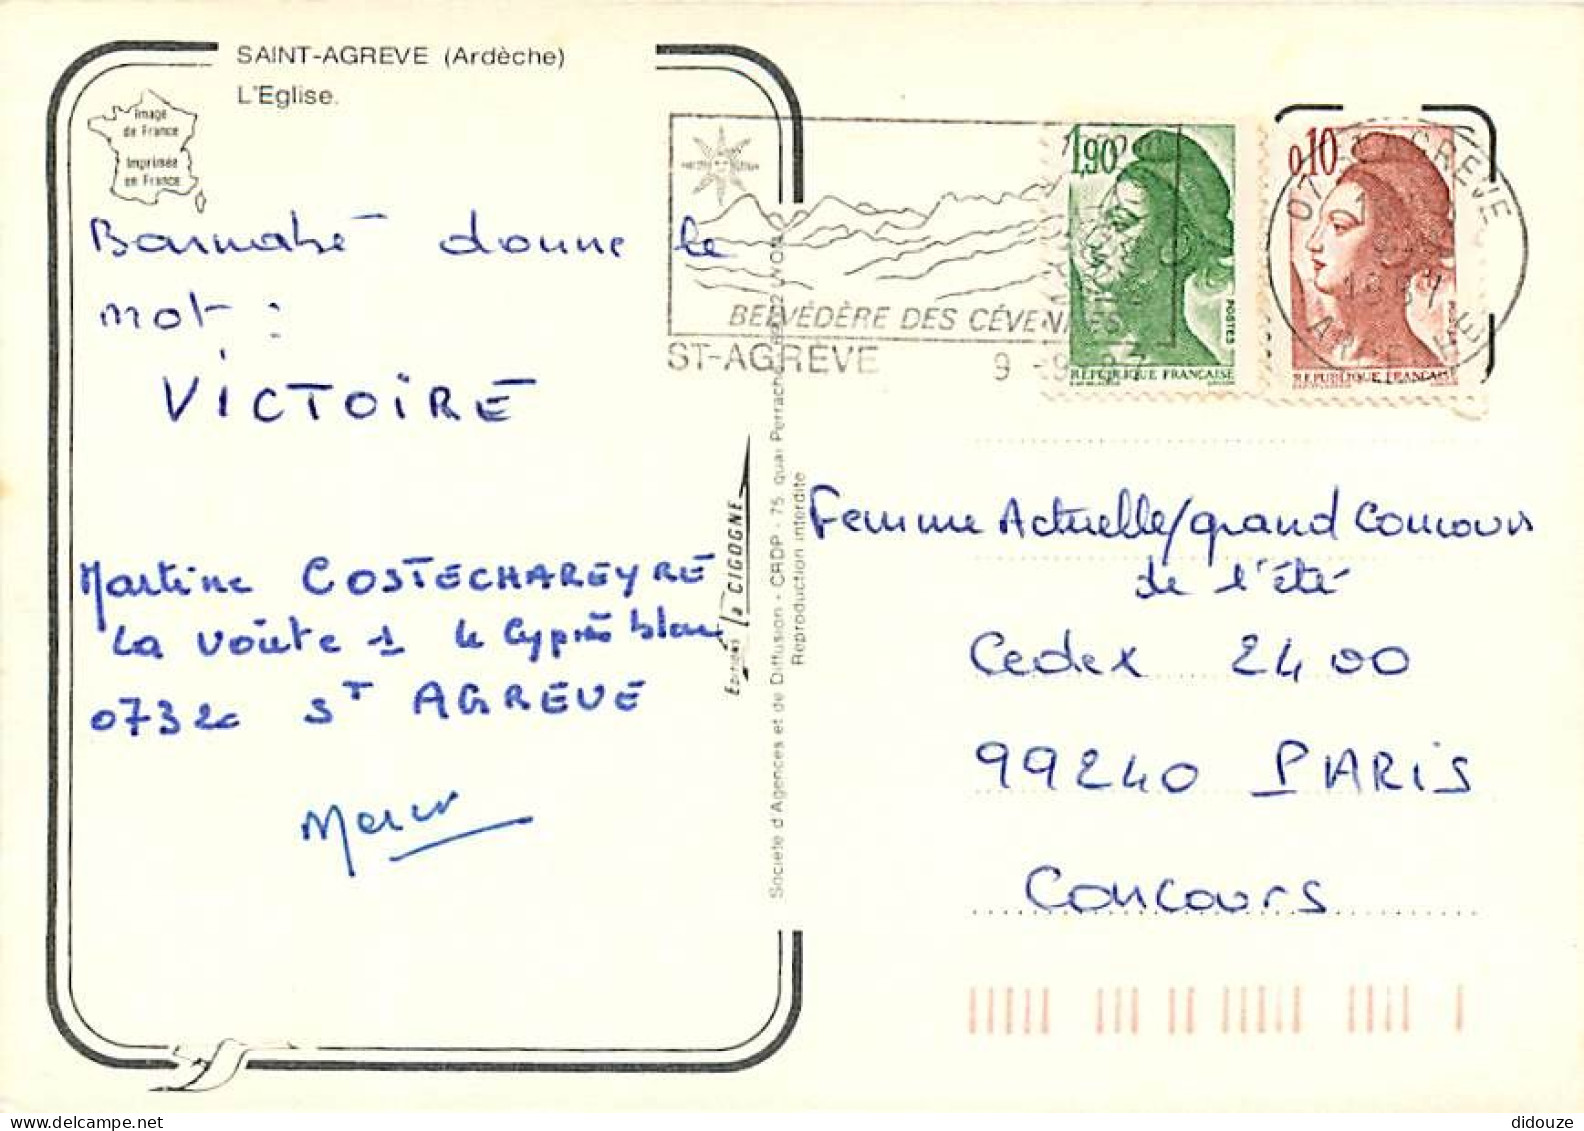 SAINT-AGREVE (Ardèche)
L'Eglise.
Image
de France
Imprimée
en France
Barnabé donne le
mot :
VICTOIRE
Martine COSTECHAREYRE
La voûte 1 le Cyprès blanc
07320 ST AGREVE
Merci
EDITIONS la CIGOGNE
Société d'Agences et de Diffusion - CRDP - 75, quai Perrache LYON
Reproduction interdite
BELVÉDÈRE DES CÉVENNES
ST-AGRÈVE 9 -9-87
1,90
POSTES
RÉPUBLIQUE FRANÇAISE
0,10
RÉPUBLIQUE FRANÇAISE
07 ST AGREVE
1987
ARDECHE
Femme Actuelle/grand Concours
de l'été
Cedex 2400
99240 PARIS
Concours
didouze